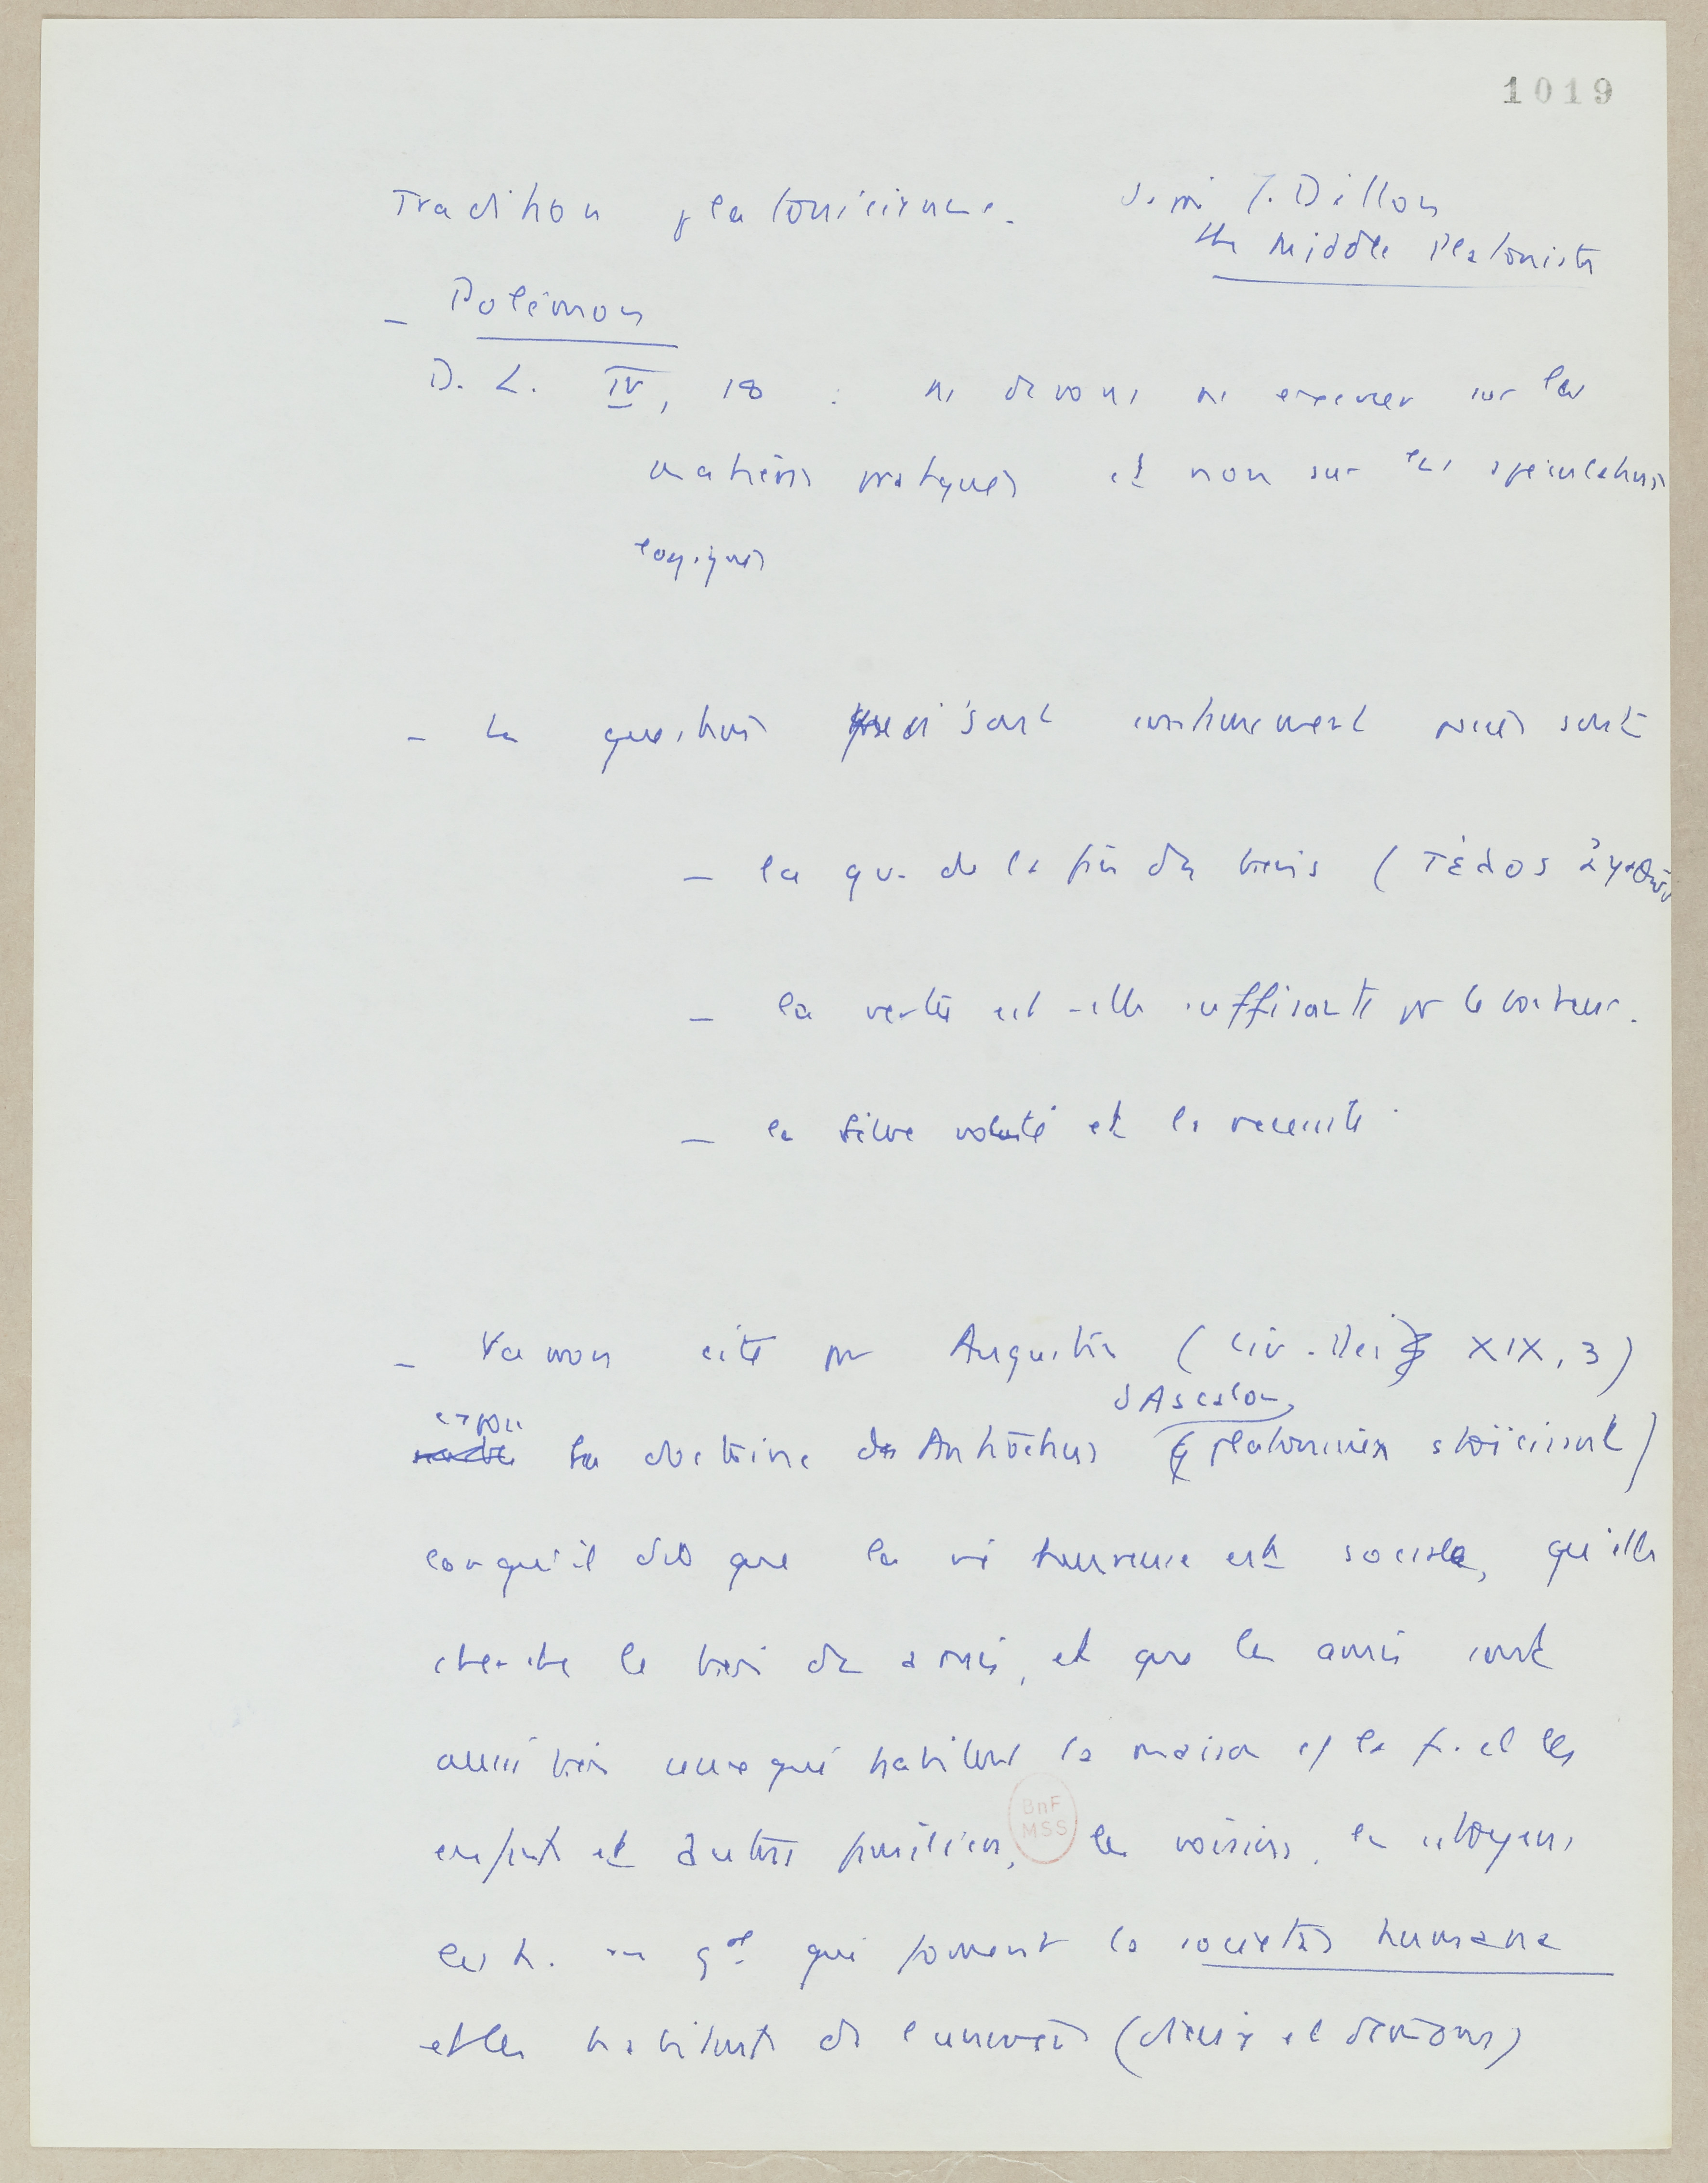 1019
Tradition platonicienne. J. Dillon
the Middle Platonists
- Polémon
D. L. IV, 18 : ns devons ns exercer sur les
matières pratiques et non sur les spéculations
logiques
- Les questions qui sont continument posées sont
- la qu. de la fin des biens (τέλος ἀγαθῶν
- la vertu est-elle suffisante pr le bonheur.
- la libre volonté et la nécessité.
- Varron cité par Augustin (Civ. Dei XIX, 3)
expose d'Ascalon,
la doctrine de Antiochus (platonicien stoïcisant)
lorsqu'il dit que la vie heureuse est sociale, qu'elle
cherche le bien des amis, et que les amis sont
aussi bien ceux qui habitent la maison cf la f. et les
enfants et autres familiers, les voisins, les citoyens
BnF
MSS
les h. en gal qui forment la societas humana
et les habitants de l'univers (dieux et démons)